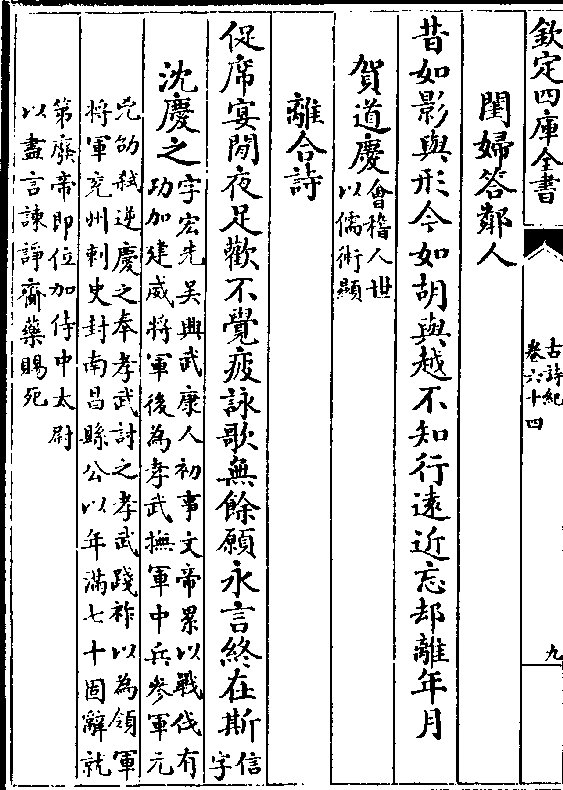 欽定四庫全書
古詩紀
卷六十四
九
閨婦答鄰人
昔如影與形今如胡與越不知行遠近忘却離年月
賀道慶
會稽人世
以儒術顯
離合詩
促席宴閒夜足歡不覺疲詠歌無餘願永言終在斯
信
字
沈慶之
字宏先吳興武康人初事文帝累以戰伐有
功加建威將軍後為孝武撫軍中兵參軍元
兇劭弑逆慶之奉孝武討之孝武踐祚以為領軍
將軍兖州刺史封南昌縣公以年滿七十固辭就
第廢帝即位加侍中太尉
以盡言諫諍齎藥賜死